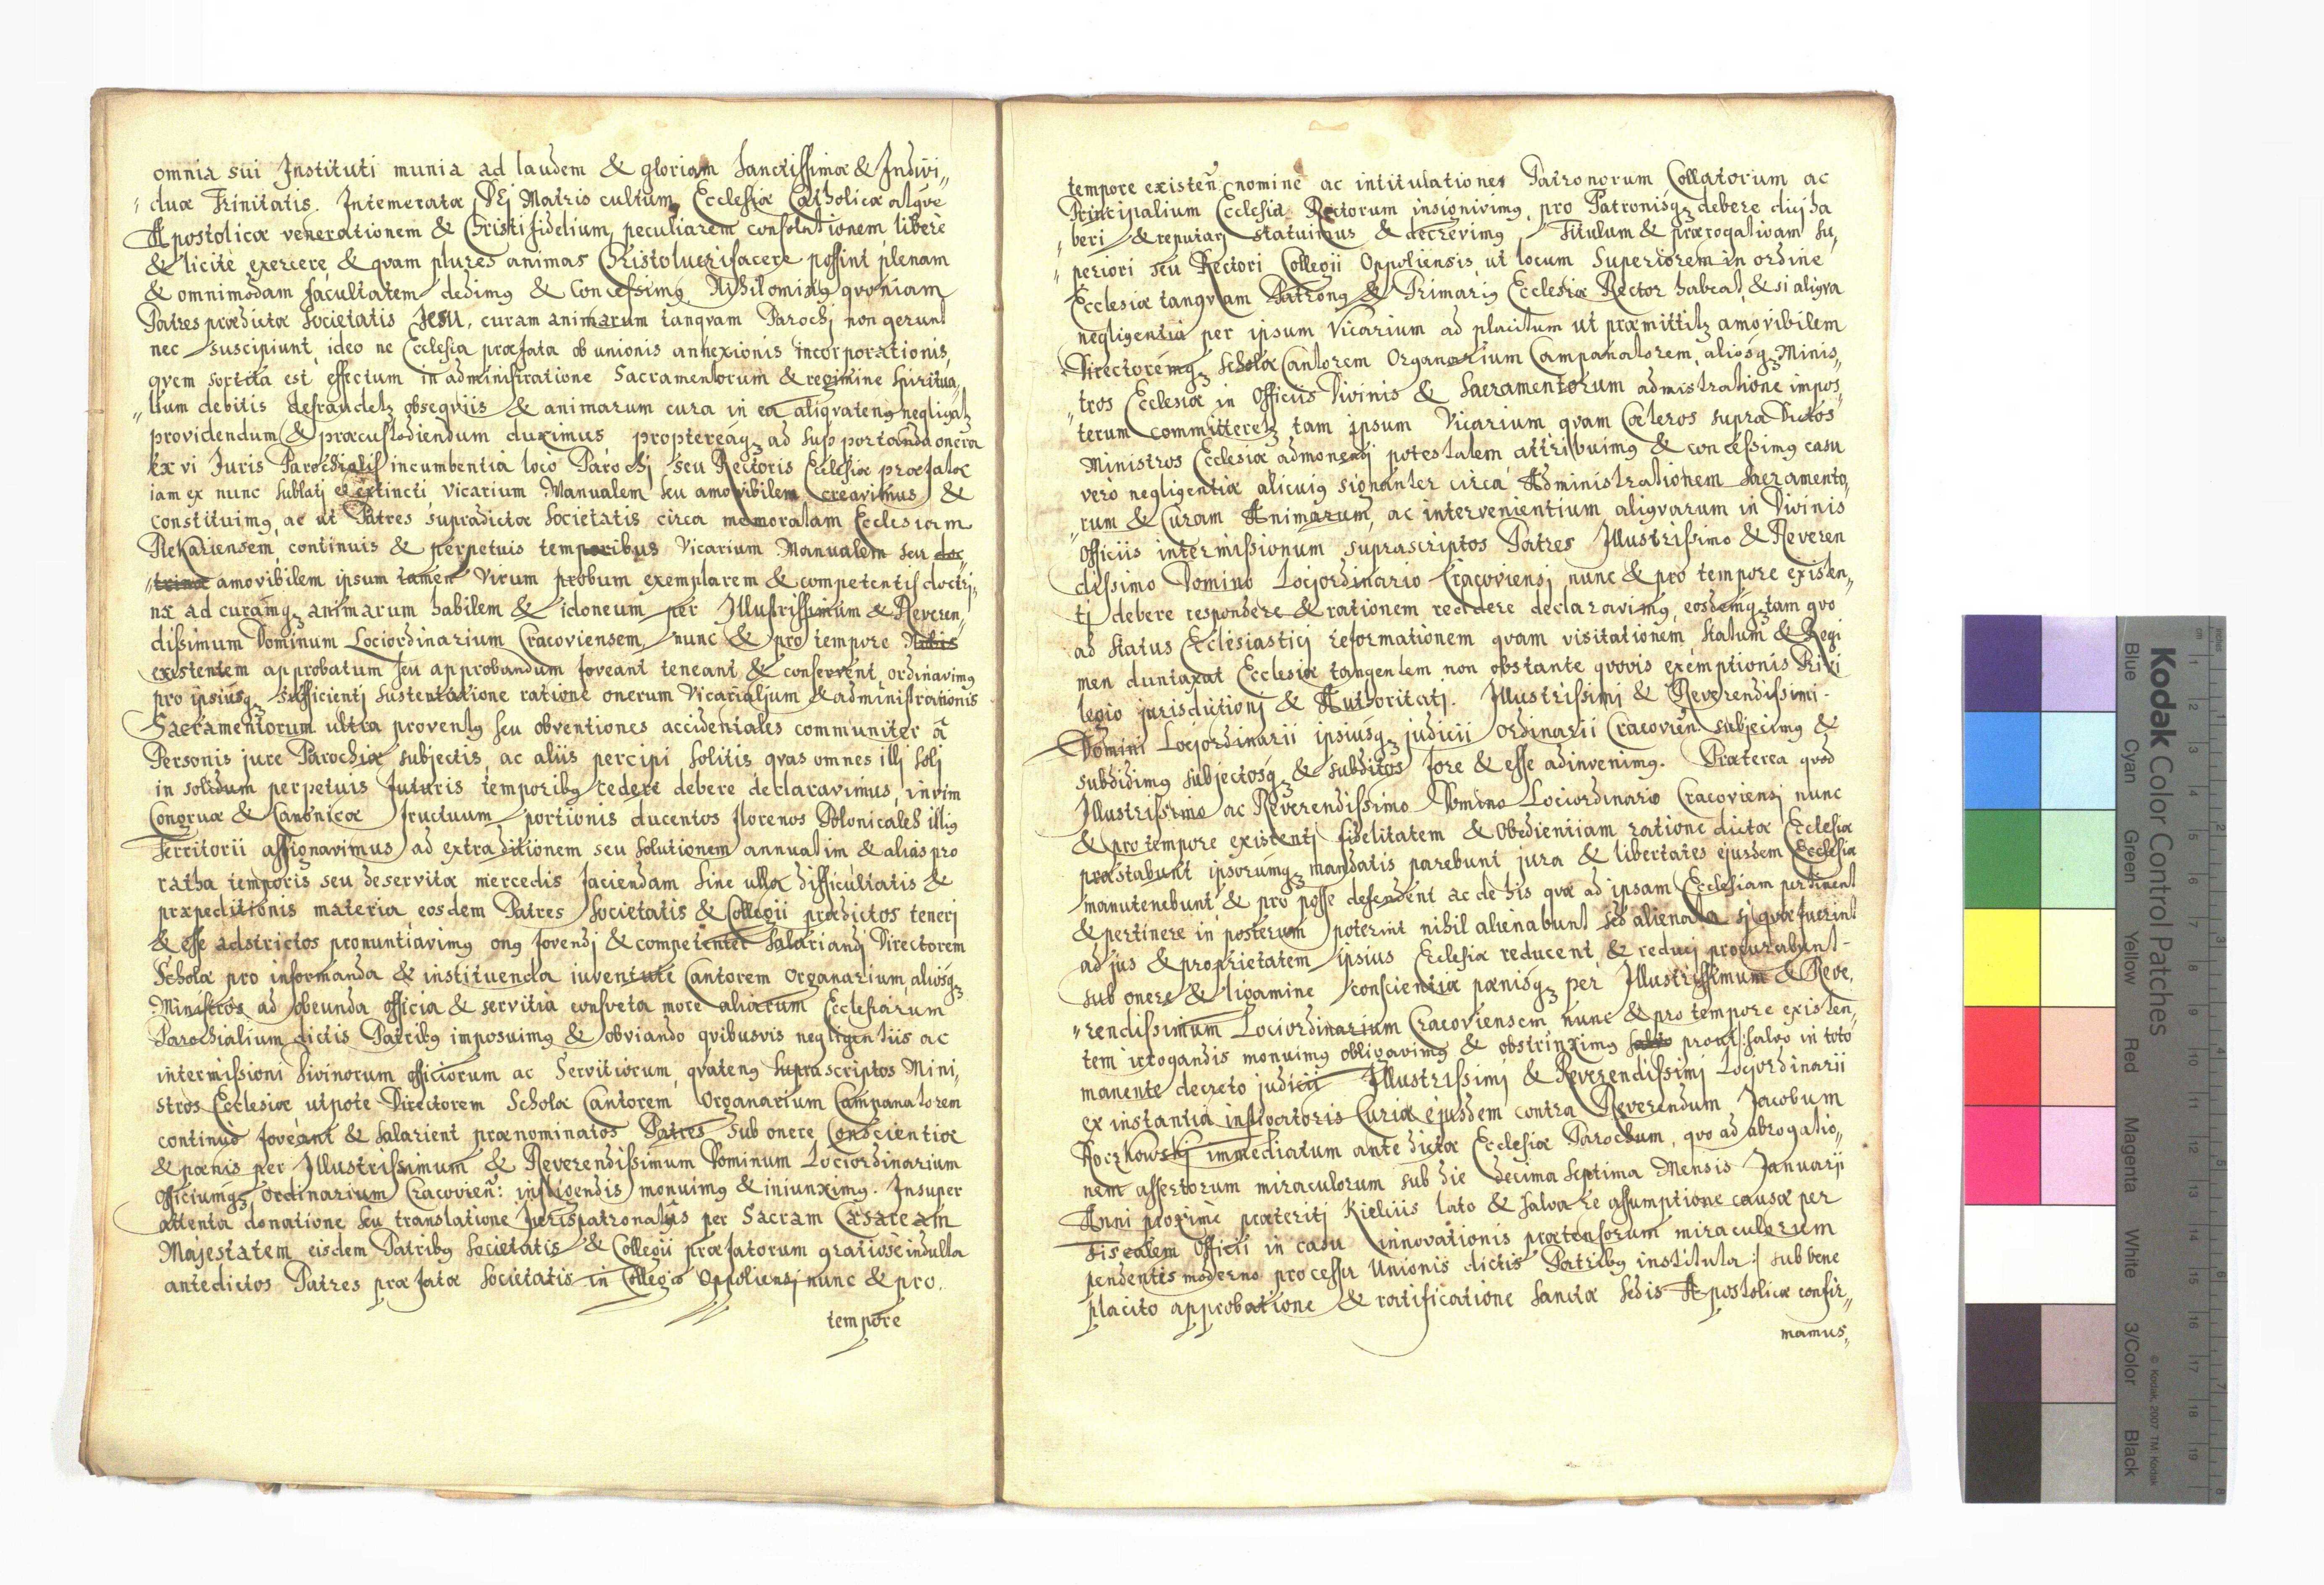 omnia sui Instituti munia ad laudem & gloriam Sanctissimæ & Indivi„
„duæ Trinitatis. Intemeratæ DEj Matris cultum Ecclesiæ Catholicæ atqve
Apostolicæ venerationem & Christi fidelium peculiarem consolationem liberè
& licitè exercere & qvam plures animas Christo lucrifacere possint plenam
& omnimodam facultatem dedimꝰ & Concessimꝰ. Nihilominꝰ qvoniam
Patres prædictæ Societatis JESU, curam animarum tanqvam Parochj non gerunt
nec suscipiunt, ideo ne Ecclesia præfata ob unionis annexionis incorporationis,
qvem sortita est effectum in administratione Sacramentorum & regimine Spiritua„
„lium debitis defraudetꝫ obseqviis & animarum cura in ea aliqvatenꝰ negligatꝫ
providendum & præcustodiendum duximus proptereaqꝫ ad supportanda onera
ex vi Juris Parochialis incumbentia loco Parochj seu Rectoris Ecclesiæ præfatæ
iam ex nunc sublatj et extincti Vicarium Manualem seu amovibilem creavimus &
constituimꝰ, ac ut Patres supradictæ Societatis circa memoratam Ecclesiam
Piekariensem continuis & perpetuis temporibus Vicarium Manualem seu doc„
„trinæ amovibilem ipsum tamen Virum probum exemplarem & competentis doctri„
næ ad curamqꝫ animarum habilem & idoneum per Illustrissimum & Reveren„
dissimum Dominum Lociordinarium Cracoviensem nunc & pro tempore Nobis
existentem approbatum seu approbandum foveant teneant & conservent ordinavimꝰ
pro ipsiusqꝫ sufficientj sustentatione ratione onerum Vicarialium & administrationis
Sacramentorum ultra proventꝰ seu obventiones accidentales communiter â
Personis jure Parochiæ subjectis, ac aliis percipi solitis qvas omnes illj solj
in solidum perpetuis futuris temporibꝰ cedere debere declaravimus, in vim
Congruæ & Canonicæ fructuum portionis ducentos florenos Polonicales illiꝰ
Territorii assignavimus ad extraditionem seu solutionem annuatim & alias pro
ratha temporis seu deservitæ mercedis faciendam sine ulla difficultatis &
præpeditionis materia eosdem Patres Societatis & Collegii prædictos tenerj
& esse adstrictos pronuntiavimꝰ onꝰ fovendj & competenter Salariandj Directorem
Scholæ pro informanda & instituenda iuventute Cantorem Organarium, aliosqꝫ
Ministros ad obeunda officia & servitia consveta more aliarum Ecclesiarum
Parochialium dictis Patribꝰ imposuimꝰ & obviando qvibusvis negligentiis ac
intermissioni Divinorum officiorum ac Servitiorum, qvatenꝰ suprascriptos Mini„
stros Ecclesiæ utpote Directorem Scholæ Cantorem Organarium Campanatorem
continuò foveant & salarient prænominatos Patres sub onere Conscientiæ
& pœnis per Illustrissimum & Reverendissimum Dominum Lociordinarium
Officiumqꝫ Ordinarium Cracovien̄: infligendis monuimꝰ & iniunximꝰ. Insuper
attenta donatione seu translatione Jurispatronatus per Sacram Cæsaream
Majestatem eisdem Patribꝰ Societatis & Collegii præfatorum gratiosè indulta
antedictos Patres præfatæ Societatis in Collegio Oppoliensj nunc & pro.
tempore
tempore existen̄ nomine ac intitulationes Patronorum Collatorum ac
Principalium Ecclesiæ Rectorum insignivimꝰ, pro Patronisqꝫ debere dicj ha
„beri & reputarj statuimus & decrevimꝰ, Titulum & prærogativam su„
„periori seu Rectori Collegii Oppoliensis ut locum Superiorem in ordine
Ecclesiæ tanqvam Patronꝰ & Primariꝰ Ecclesiæ Rector habeat, & si aliqva
negligentia per ipsum Vicarium ad placitum ut præmittitꝫ amovibilem
Directoremqꝫ Scholæ Cantorem Organarium Campanatorem, aliosqꝫ Minis„
„tros Ecclesiæ in Officiis Divinis & Sacramentorum admistratione impos„
terum committeretꝫ tam ipsum Vicarium qvam Cæteros supra Dictos
Ministros Ecclesiæ admonendj potestatem attribuimꝰ & concessimꝰ casu
verò negligentiæ alicuiꝰ signanter circa Administrationem Sacramento„
rum & Curam Animarum, ac intervenientium aliqvarum in Divinis
„Officiis intermissionum suprascriptos Patres Illustrissimo & Reveren
dissimo Domino Locjordinario Cracoviensj nunc & pro tempore existen„
tj debere respondere & rationem reddere declaravimꝰ, eosdemqꝫ tam qvo
ad Status Ecclesiasticj reformationem qvam visitationem statum & Regi
men duntaxat Ecclesiæ tangentem non obstante qvovis exemptionis Privi
legio jurisdictionj & Authoritatj. Illustrissimj & Reverendissimi.
Domini Locjordinarii ipsiusqꝫ judicii ordinarii Cracovien̄. subjecimꝰ &
subdidimꝰ subjectosqꝫ & subditos fore & esse adinvenimꝰ. Præterea qvod
Illustrissimo ac Reverendissimo Domino Lociordinario Cracoviensj nunc
& pro tempore existentj fidelitatem & Obedientiam ratione dictæ Ecclesiæ
præstabunt ipsorumqꝫ mandatis parebunt jura & libertates ejusdem Ecclesiæ
manutenebunt & pro posse defendent ac de his qvæ ad ipsam Ecclesiam pertinent
& pertinere in posterum poterint nihil alienabunt sed alienata sj qvæ fuerint
ad jus & proprietatem ipsius Ecclesiæ reducent, & reducj procurabunt
sub onere & ligamine conscientiæ pœnisqꝫ per Illustrissimum & Reve„
„rendissimum Lociordinarium Cracoviensem nunc & pro tempore existen„
tem irrogandis monuimꝰ obligavimꝰ & obstrinximꝰ salvo prout |: salvo in toto
manente decreto judicii Illustrissimj & Reverendissimj Locjordinarii
ex instantia instigatoris Curiæ ejusdem contra Reverendum Jacobum
Roczkowskj immediatum ante dictæ Ecclesiæ Parochum, qvo ad abrogatio„
nem assertorum miraculorum sub die decima Septima Mensis Januarij
Anni proximè præteritj Kielciis lato & salva re assumptione causæ per
Fiscalem Officii in casu innovationis prætensorum miraculorum
pendentis moderno processu Unionis dictis Patribꝰ instituta :| sub bene
placito approbatione & ratificatione Sanctæ Sedis Apostolicæ confir„
mamus„
Kodak Color Control Patches
© Kodak, 2007 TM: Kodak
Blue Cyan Green Yellow Red Magenta White 3/Color Black
cm 1 2 3 4 5 6 7 8 9 10 11 12 13 14 15 16 17 18 19
inches 1 2 3 4 5 6 7 8